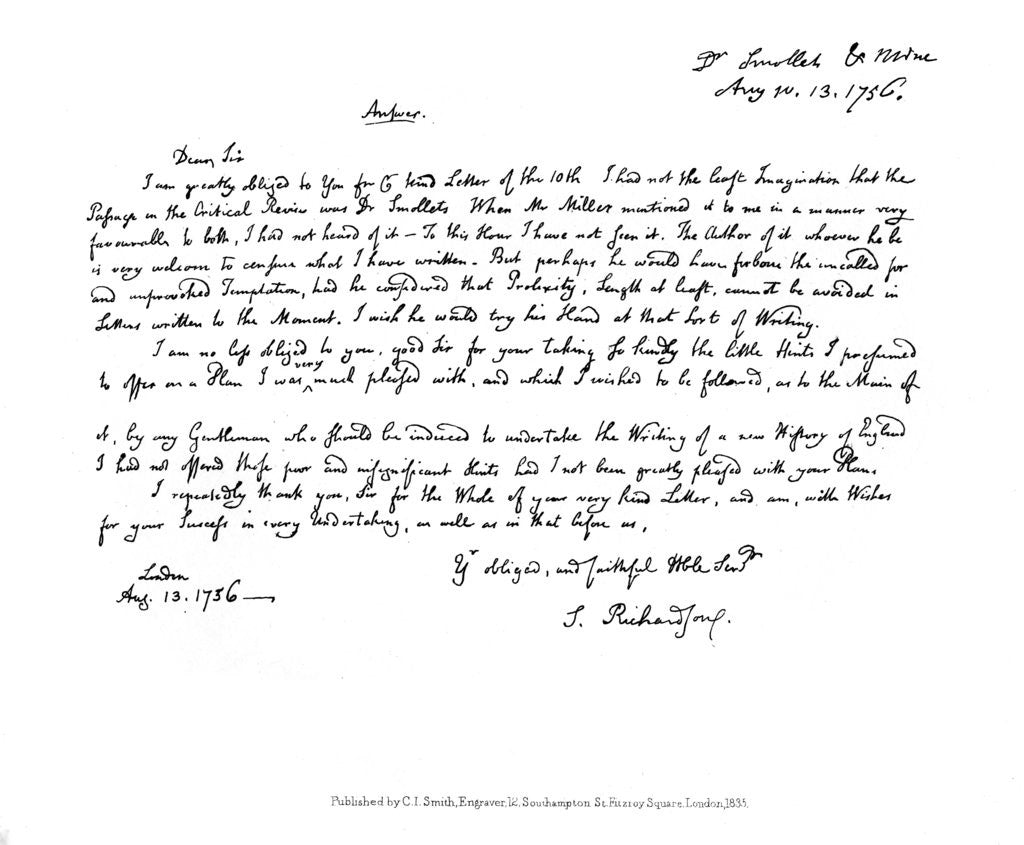 Dr Smollets & Mine
Aug 10. 13. 1756.
Answer.
Dear Sir
I am greatly obliged to You for kind Letter of the 10th I had not the least Imagination that the
Passage in the Critical Review was Dr Smollets When Mr Millar mentioned it to me in a manner very
favourable to both, I had not heard of it — To this Hour I have not seen it. The Author of it whoever he be
is very welcom to censure what I have written. But perhaps he would have forborne the uncalled for
and unprovoked Temptation, had he considered that Prolixity, Length at least, cannot be avoided in
Letters written to the Moment. I wish he would try his Hand at that Sort of Writing.
I am no less obliged to you, good Sir for your taking so kindly the little Hints I presumed
to offer on a Plan I was very much pleased with, and which I wished to be followed, as to the Main of
it, by any Gentleman who should be induced to undertake the Writing of a new History of England
I had not offered those poor and insignificant Hints had I not been greatly pleased with your Plan.
I repeatedly thank you, Sir for the Whole of your very kind Letter, and am, with Wishes
for your Success in every Undertaking, as well as in that before us,
Yr obliged, and faithful Hble Servt
London
Aug. 13. 1756 —
S. Richardson.
Published by C.I. Smith, Engraver, 12, Southampton St. Fitzroy Square, London, 1835.